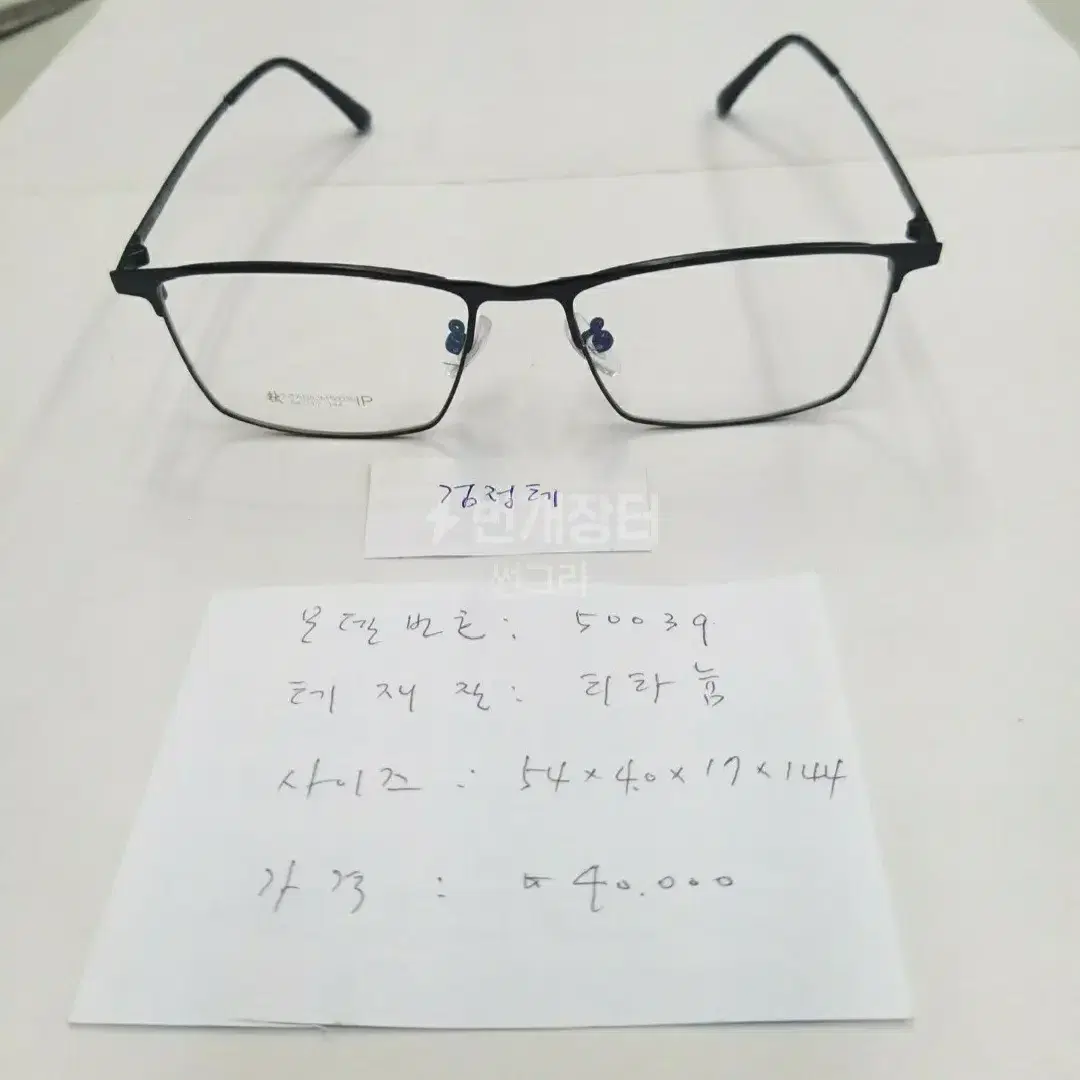 IP
검정테
번개장터
썬그라
모델번호: 50039
테 재질: 티타늄
사이즈 : 54×40×17×144
가격 : ₩40.000